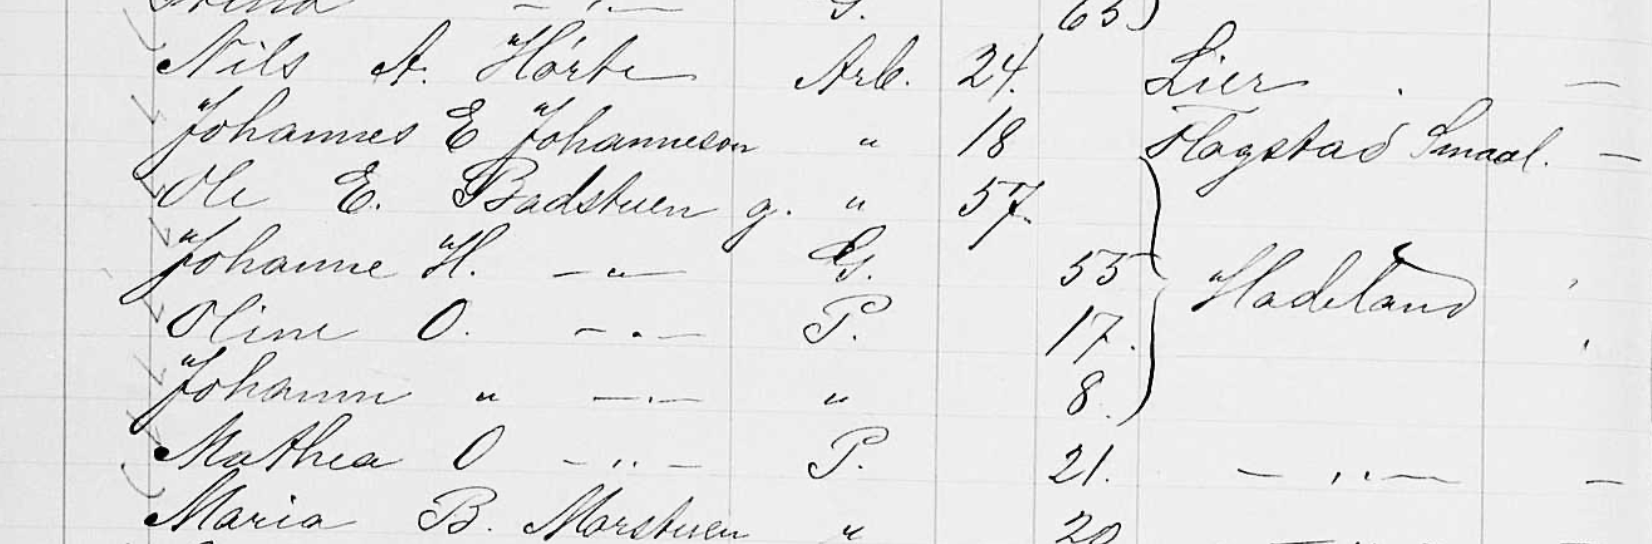 G. 65
Nils A. Hörte Arb. 24. Lier. —
Johannes E Johanneson " 18 Flagstad Smaal. —
Ole E. Badstuen g. " 57.
Johanne H. — " — G. 55
Hadeland
Oline O. — " — P. 17.
Johanne " — " — " 8.
Mathea O — " — P. 21. — " — —
Maria B. Morstuen " 20